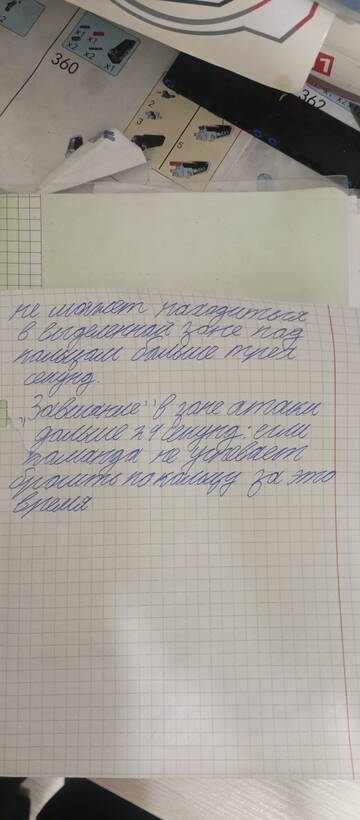 2
x1 x1
x2
x2 x1
360
362
2
3
5
не может находиться
в выделенной зоне под
кольцом больше трех
секунд.
"Зависание" в зоне атаки
дольше 24 секунд: если
команда не успевает
бросить по кольцу за это
время